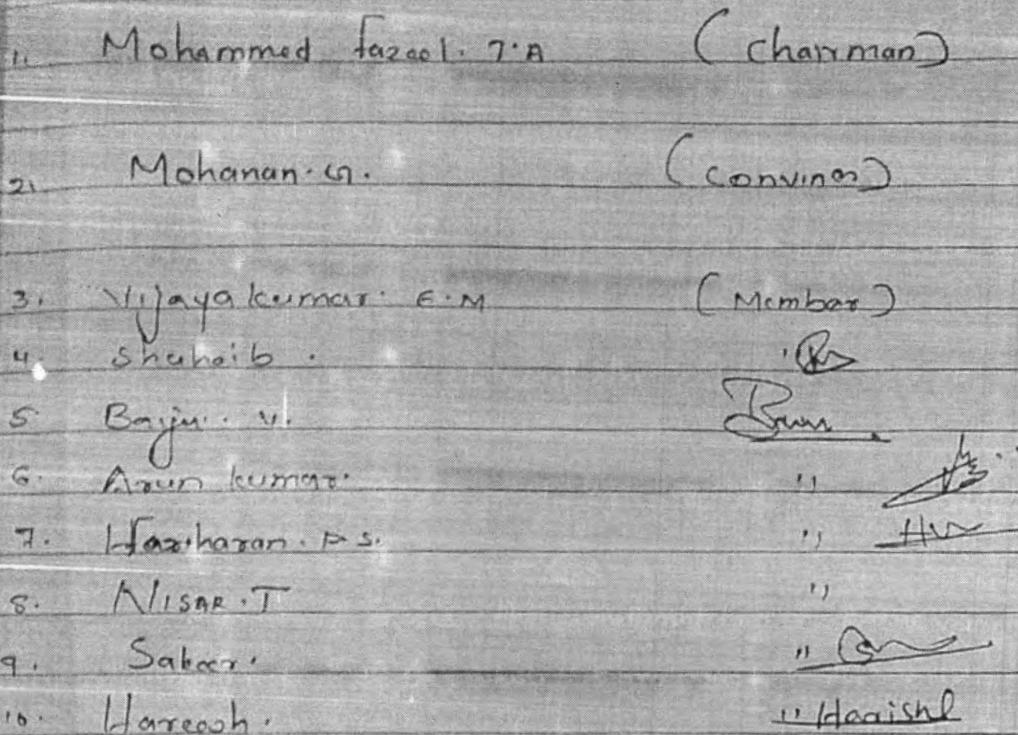 1. Mohammed fazeel. T.A (Chairman)
2. Mohanan. G. (Convinor)
3. Vijayakumar. E.M (Member)
4. Shuhaib. "
5 Baiju. V.
6. Arun kumar. "
7. Hariharan. P S. "
8. NISAR. T "
9. Sakeer. "
10. Hareesh. " Haaish